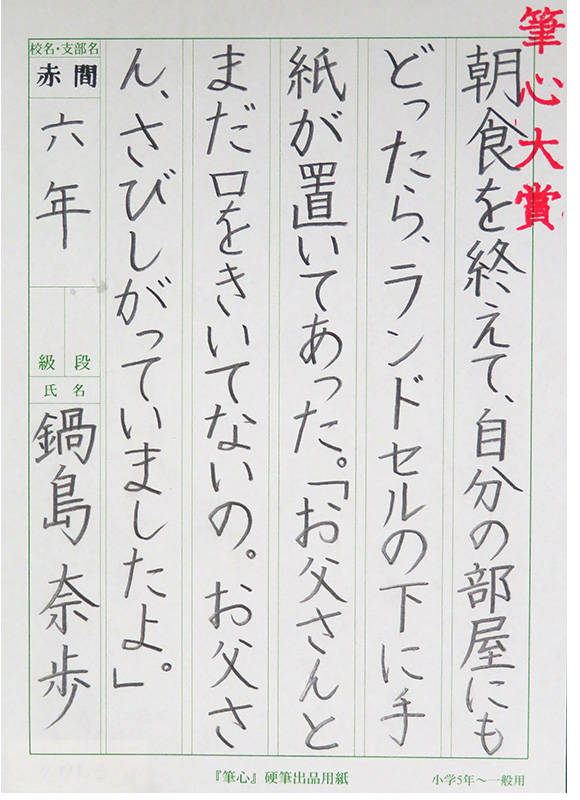 筆心大賞
朝食を終えて、自分の部屋にも
どったら、ランドセルの下に手
紙が置いてあった。「お父さんと
まだ口をきいてないの。お父さ
ん、さびしがっていましたよ。」
校名・支部名
赤間
六年
級段
氏名
鍋島奈歩
『筆心』硬筆出品用紙
小学5年〜一般用